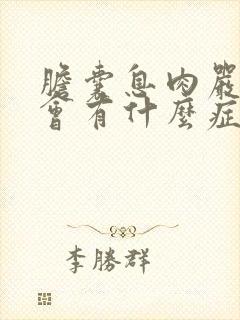 膽囊息肉嚴
會有什麼症
李勝群